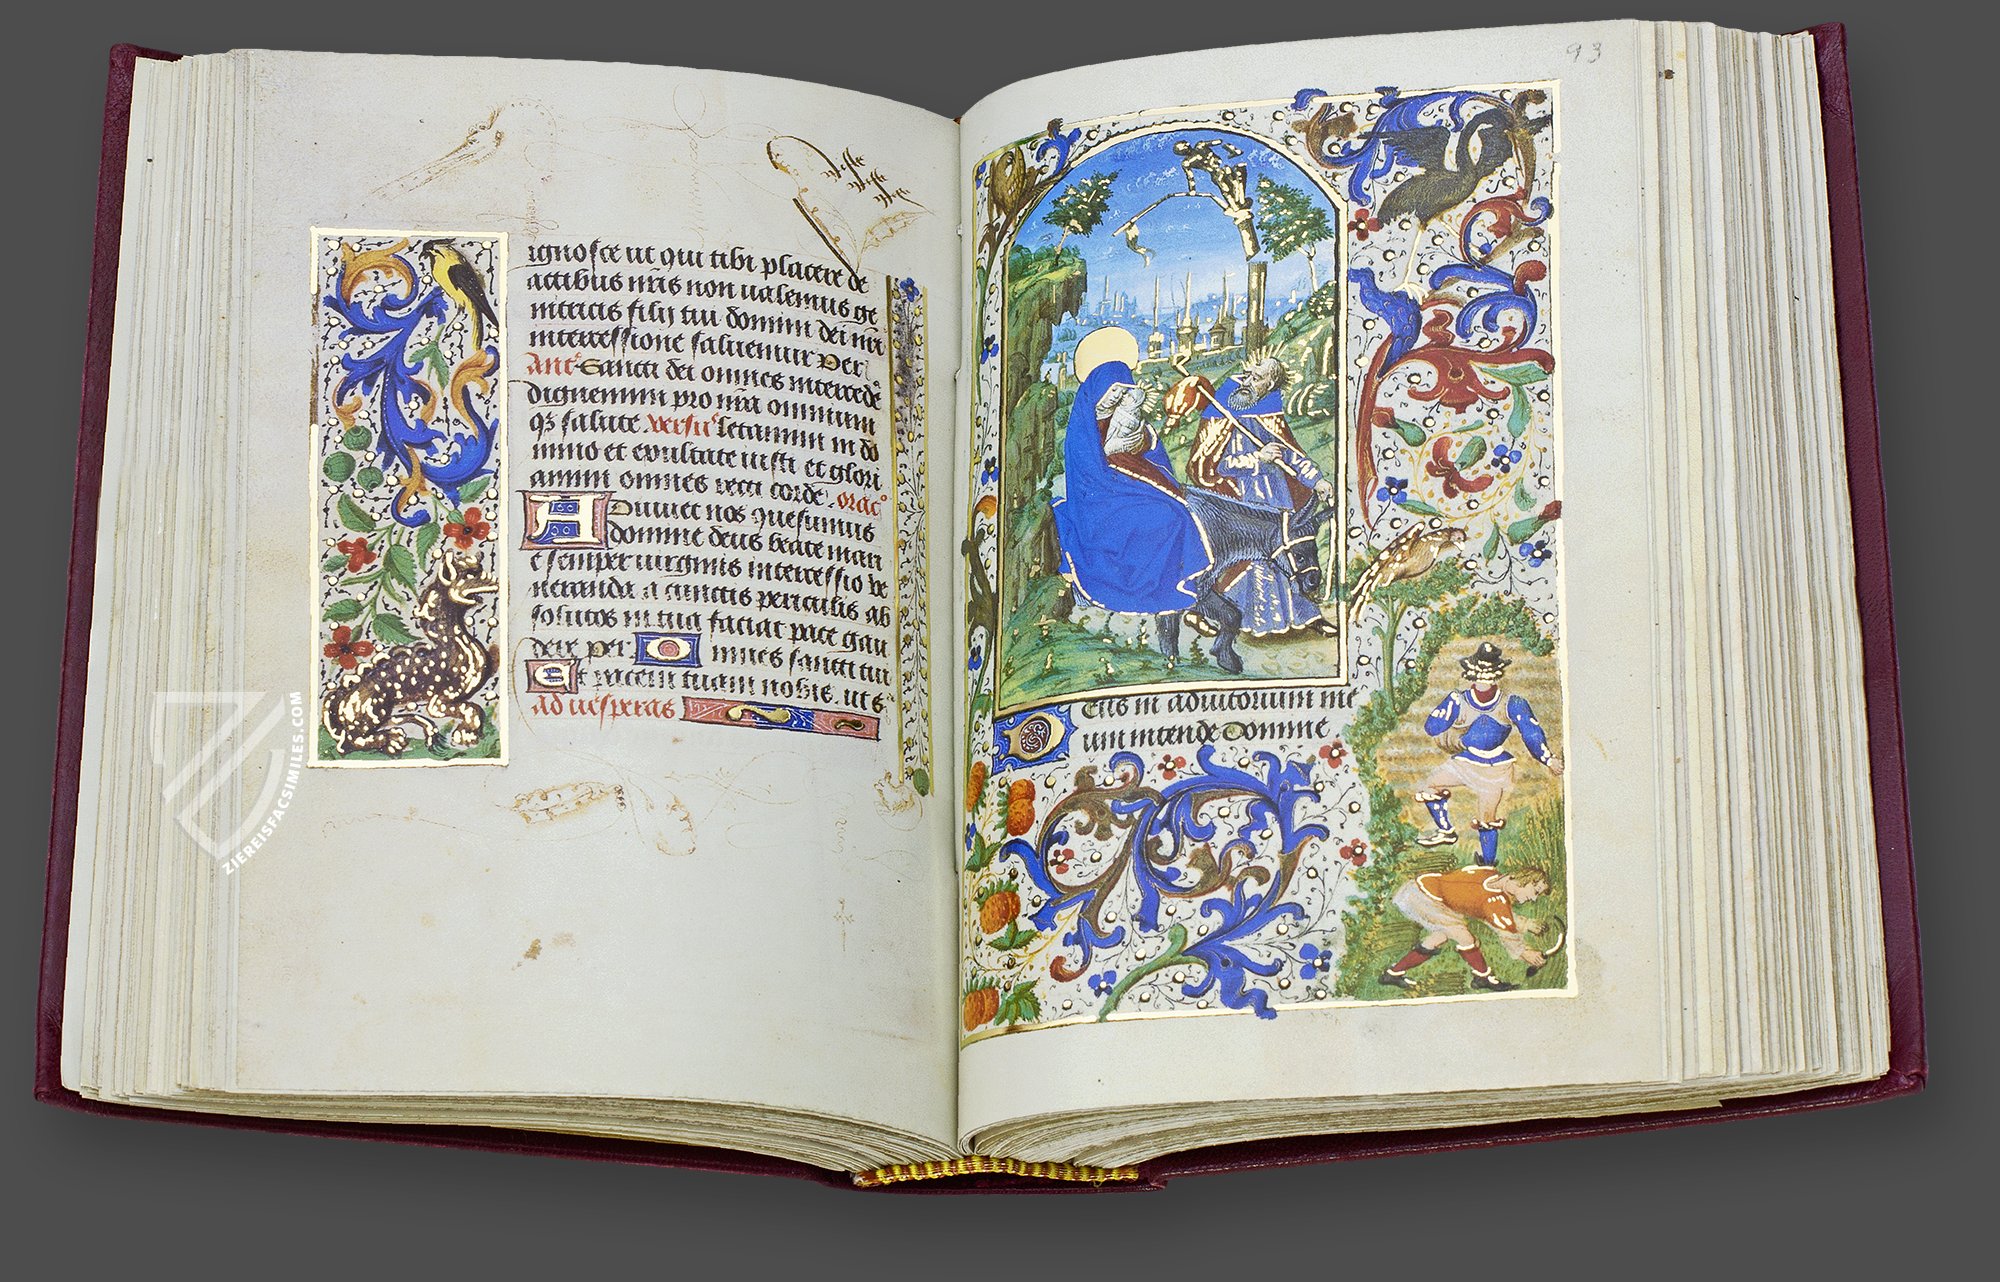 ignosce ut qui tibi placere de
actibus nr̃is non ualemus ge
nitricis filij tui domini dei nr̃i
intercessione saluemur per
Ant̃ Sancti dei omnes intercede
dignemini pro nr̃a omnium
qȝ salute versu' letamini in do
mino et exultate iusti et glori
amini omnes recti corde. orac̃o
Adiuuet nos quesumus
domine deus beate mari
e semper uirginis intercessio ve
neranda a cunctis periculis ab
solutos in tua faciat pace gau
dere per. Omnes sancti tui
Et pacem tuam nobis. ut s
ad vesperas
93
Deus in adiutorium me
um intende Domine.
ZIEREISFACSIMILES.COM